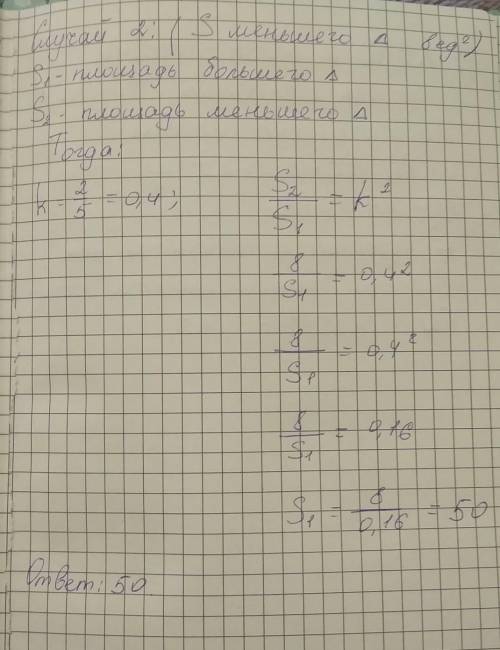 Случай 2: ( S меньшего Δ 8 ед²)
S₁ - площадь большего Δ
S₂ - площадь меньшего Δ
Тогда:
k = 2/5 = 0,4;
S₂/S₁ = k²
8/S₁ = 0,4²
8/S₁ = 0,4²
8/S₁ = 0,16
S₁ = 8/0,16 = 50
Ответ: 50